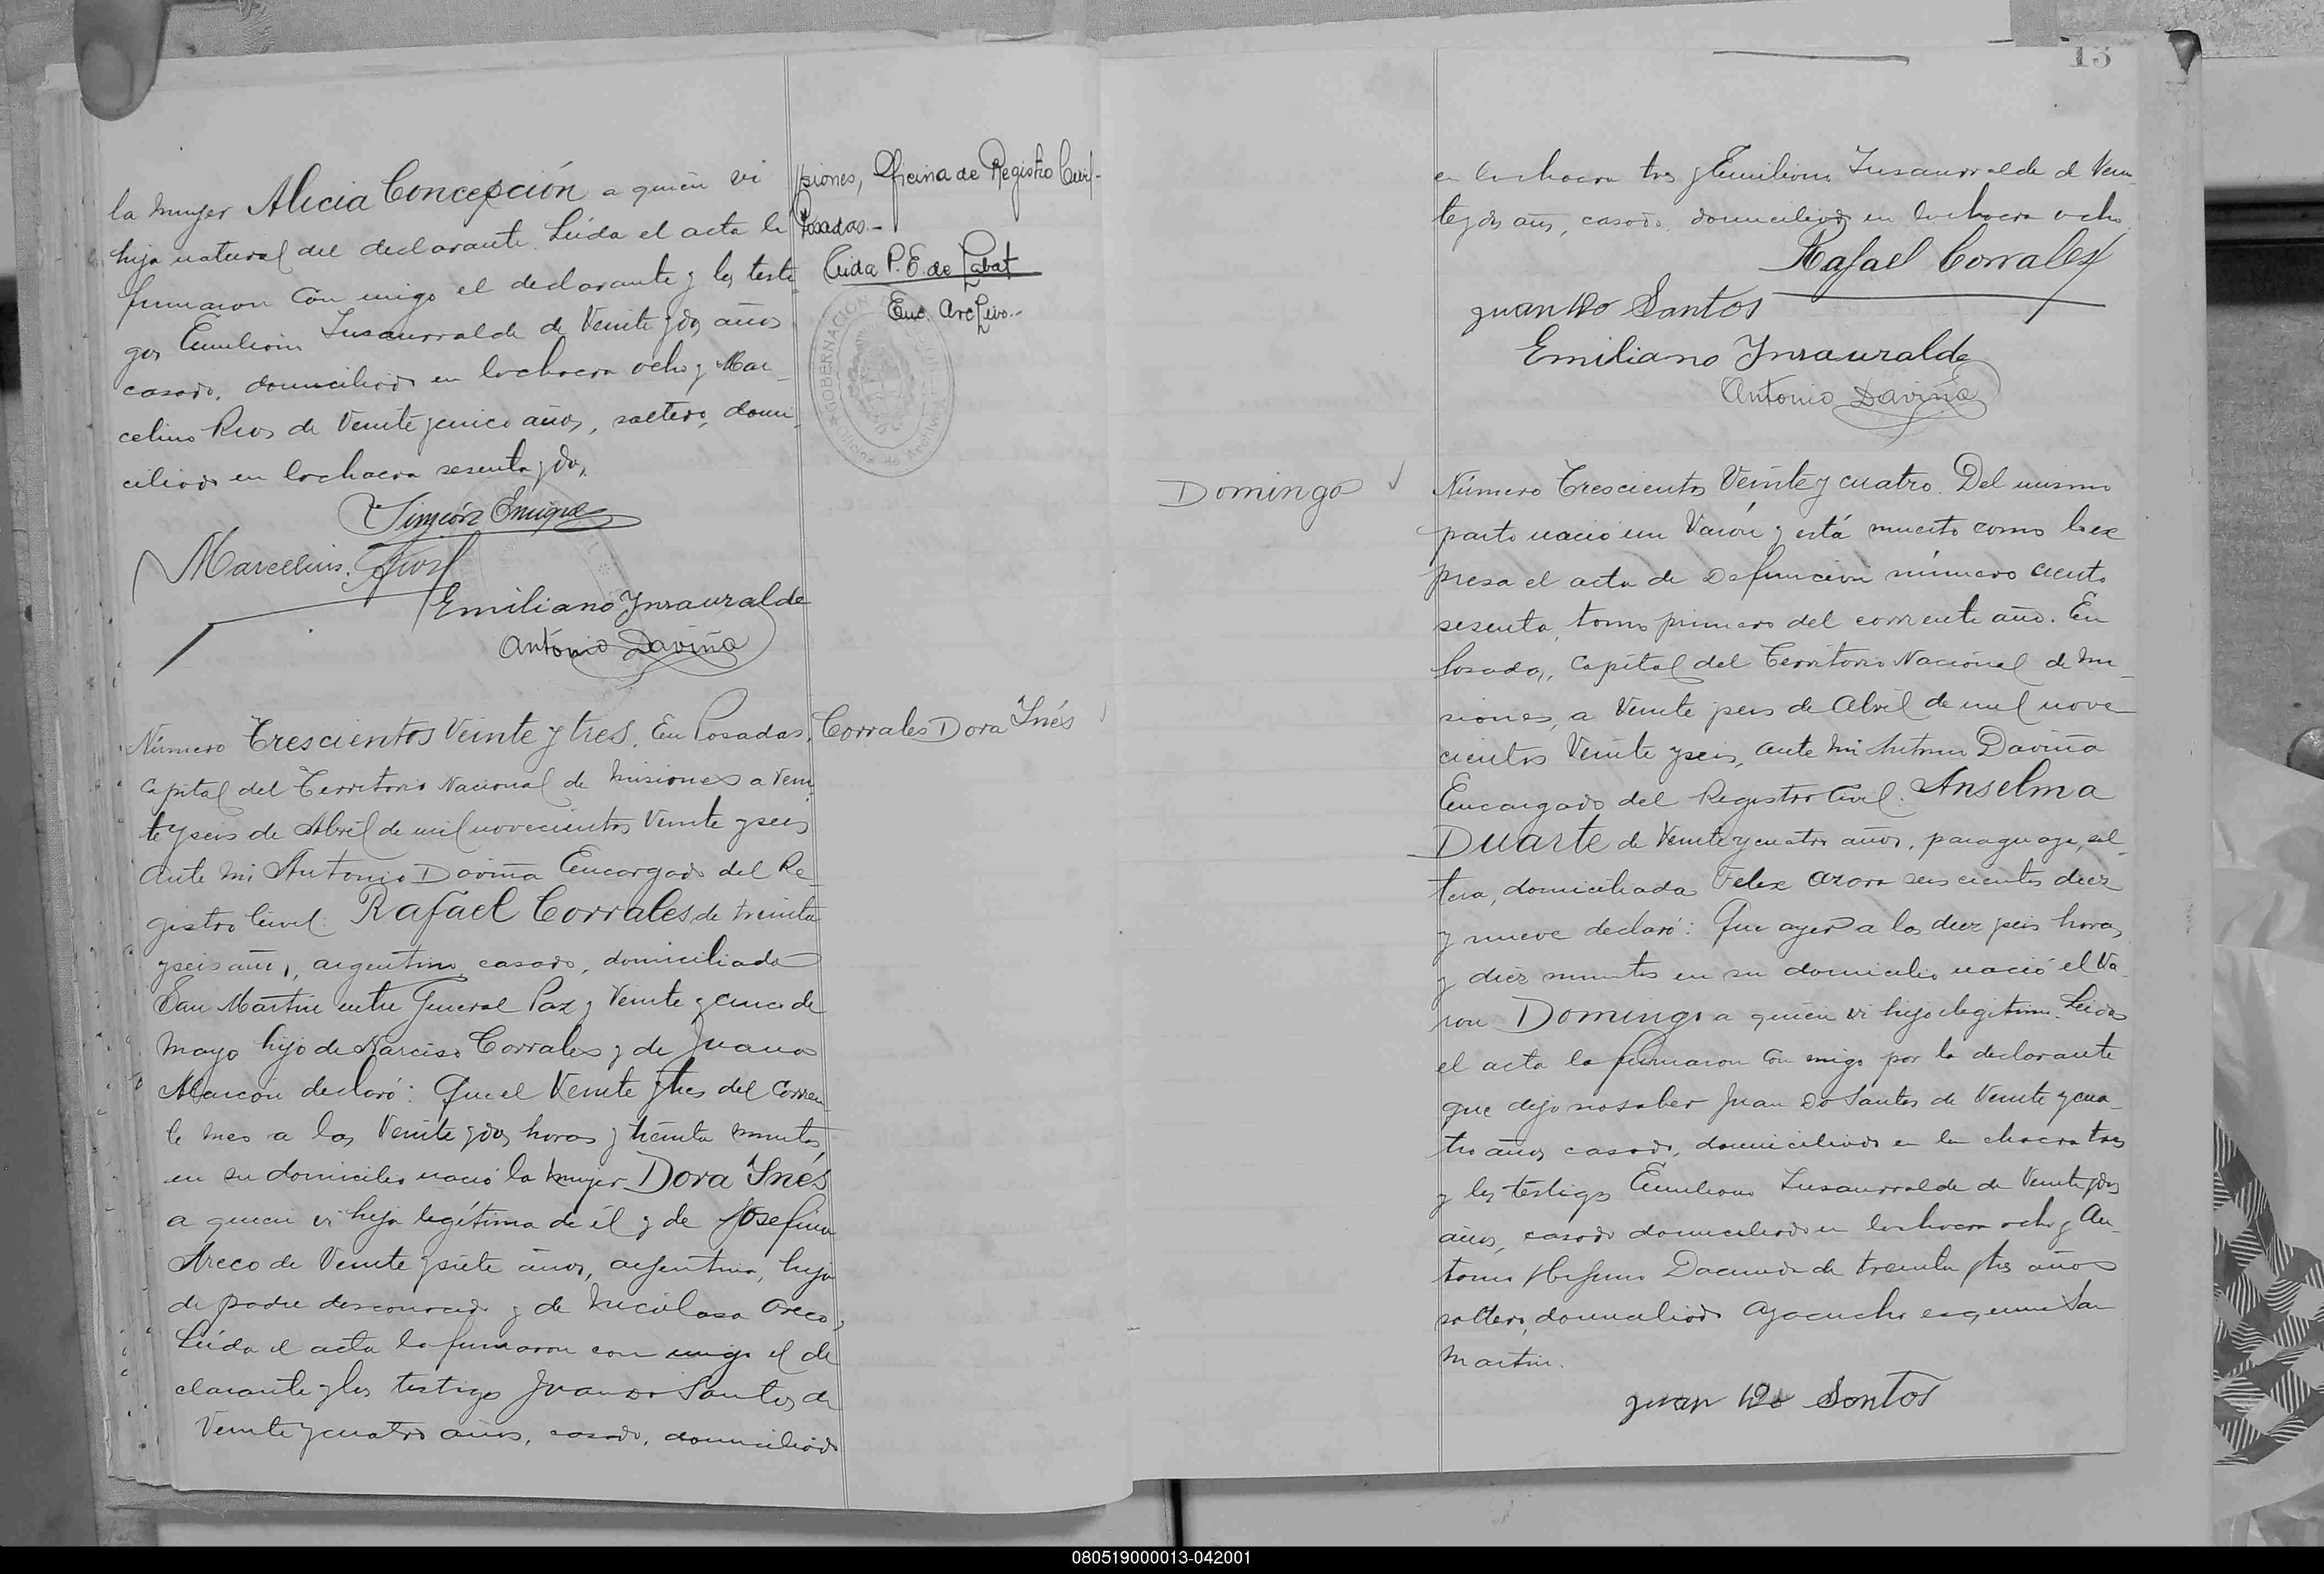 la mujer Alicia Concepción a quien vi
hija natural del declarante. Leída el acta la
firmaron con migo el declarante y los testi
gos Emiliano Insaurralde de Veinte y dos años
casado, domiciliado en la chacra ocho y Mar_
celino Rios de Veinte y cinco años, soltero, domi
ciliado en la chacra sesenta y dos.
Simeón Enrique
Marcelino Rios
Emiliano Insauralde
Antonio Daviña
siones, Oficina de Registro Civil-
Posadas.-
Crida P. E. de Labat
Enc. Archivo.-
GOBERNACION
Oficina de Archivo
Corrales Dora Inés
Número Trescientos Veinte y tres. En Posadas,
Capital del Territorio Nacional de Misiones a Vein
te y seis de Abril de mil novecientos Veinte y seis
Ante mi Antonio Daviña Encargado del Re_
gistro Civil: Rafael Corrales de treinta
y seis años, argentino, casado, domiciliado
San Martin entre General Paz y Veinte y cinco de
Mayo hijo de Narciso Corrales y de Juana
Alarcón declaró: Que el Veinte y tres del Corrien
te mes a las Veinte y dos horas y treinta minutos
en su domicilio nació la mujer Dora Inés
a quien vi hija legítima de él y de Josefina
Areco de Veinte y siete años, argentina, hija
de padre desconocido y de Nicolasa Areco,
Leída el acta la firmaron con migo el de
clarante y los testigos Juan Do Santos de
Veinte y cuatro años, casado, domiciliado
13
en la chacra tres y Emiliano Insaurralde de Vein
te y dos años, casado, domiciliado en la chacra ocho
Rafael Corrales
Juan Do Santos
Emiliano Insauralde
Antonio Daviña
Domingo
Número Trescientos Veinte y cuatro. Del mismo
parto nació un Varón y está muerto como lo ex
presa el acta de Defunción número ciento
sesenta, tomo primero del corriente año. En
Posadas, Capital del Territorio Nacional de Mi_
siones, a Veinte y seis de Abril de mil nove
cientos Veinte y seis, ante mi Antonio Daviña
Encargado del Registro Civil: Anselma
Duarte de Veinte y cuatro años, paraguaya, sol_
tera, domiciliada Felix Azara seiscientos diez
y nueve declaró: Que ayer a las diez y seis horas
y diez minutos en su domicilio nació el Va_
ron Domingo a quien vi hijo ilegitimo. Leída
el acta la firmaron con migo por la declarante
que dijo no saber Juan Do Santos de Veinte y cua_
tro años casado, domiciliado en la chacra tres
y los testigos Emiliano Insaurralde de Veinte y dos
años, casado domiciliado en la chacra ocho y An_
tonio de treinta y tres años
soltero, domiciliado Ayacucho esquina San
Martin.
Juan Do Santos
080519000013-042001